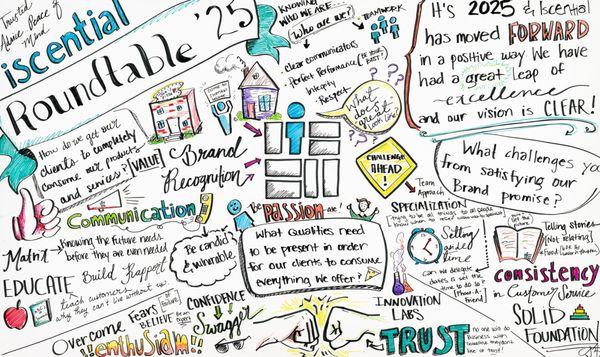 Trusted
Peace of
Mind
iscential
Roundtable '25
KNOWING
WHO WE ARE...
(Who are we?)
TEAMWORK
- clear communicators
- Perfect Performance
- Integrity
- Respect
It's 2025 & Iscential
has moved FORWARD
in a positive way We have
had a great leap of
excellence
and our vision is CLEAR!
How do we get our
clients to completely
consume our products
and services?
VALUE
Brand
Recognition
What
does
great
look like?
CHALLENGE
AHEAD!
Team
Approach
What challenges you
from satisfying our
Brand promise?
Communication
Knowing the future needs
before they are even needed
Build Rapport
EDUCATE
teach customers
why they can't live without us
Be candid
& vulnerable
Be PASSIONate!
What Qualities need
to be present in order
for our clients to consume
everything we offer?
SPECIALIZATION
trying to be all things to all people
Sitting
Time
Can we delegate
INNOVATION
LABS
Telling stories
(Not Relating)
consistency
in Customer Service
SOLID
FOUNDATION
Overcome fears
BELIEVE
!!enthusiasm!!
CONFIDENCE
Swagger
TRUST
no one will do
business with